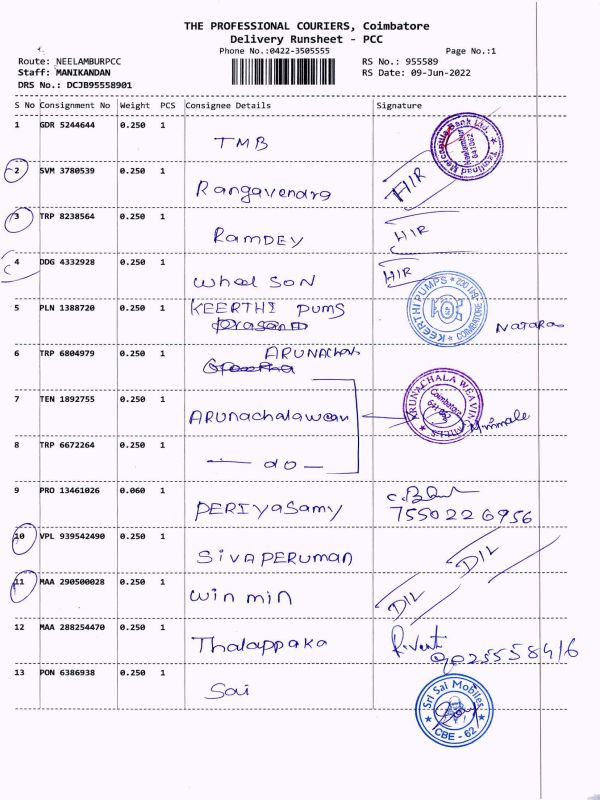 THE PROFESSIONAL COURIERS, Coimbatore
Delivery Runsheet - PCC
Phone No.:0422-3505555 Page No.:1
Route: NEELAMBURPCC RS No.: 955589
Staff: MANIKANDAN RS Date: 09-Jun-2022
DRS No.: DCJB95558901
S No Consignment No Weight PCS Consignee Details Signature
1 GDR 5244644 0.250 1 TMB
Tamilnad Mercantile Bank Ltd. 641062
2 SVM 3780539 0.250 1 Rangavendra HIR
3 TRP 8238564 0.250 1 RamDEY HIR
4 DDG 4332928 0.250 1 Wheel SON HIR
5 PLN 1388720 0.250 1 KEERTHI PUMS
KEERTHI PUMPS COIMBATORE
6 TRP 6804979 0.250 1 ARUNAchal
7 TEN 1892755 0.250 1 ARUNachalaweav
ARUNACHALA WEAVING MILLS Coimbatore
8 TRP 6672264 0.250 1 — do —
9 PRO 13461026 0.060 1 PERIYASamy 7550226956
10 VPL 939542490 0.250 1 SIVAPERUMAN D/L
11 MAA 290500028 0.250 1 Win min D/L
12 MAA 288254470 0.250 1 Thalappaka 9025558416
13 PON 6386938 0.250 1 Sai
Sri Sai Mobiles CBE - 62